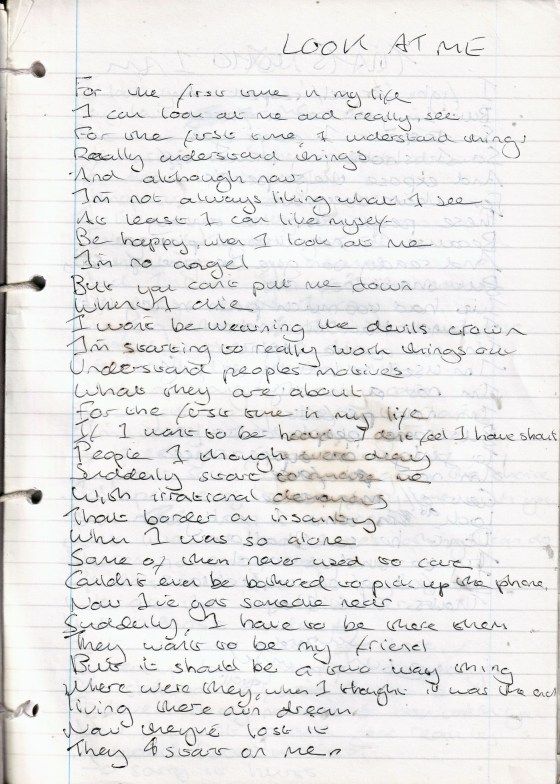 LOOK AT ME
For the first time in my life
I can look at me and really see
For the first time, I understand things
Really understand things
And although now
I'm not always liking what I see
At least I can like myself
Be happy, when I look at me
I'm no angel
But you cant put me down
When I die
I wont be wearning the devils crown
I'm starting to really work things out
Understand peoples motives
What they are about
For the first time in my life
If I want to be heard, I dont feel I have shout
People I thought were okay
Suddenly start to me
With irrational demands
That border on insanity
When I was so alone
Some of them never used to care
Couldn't ever be bothered to pick up the phone.
Now I've got someone near
Suddenly, I have to be there them
They want to be my friend
But it should be a two way thing
Where were they, when I thought it was the end
Living there own dream
Now they've lost it
They start on me